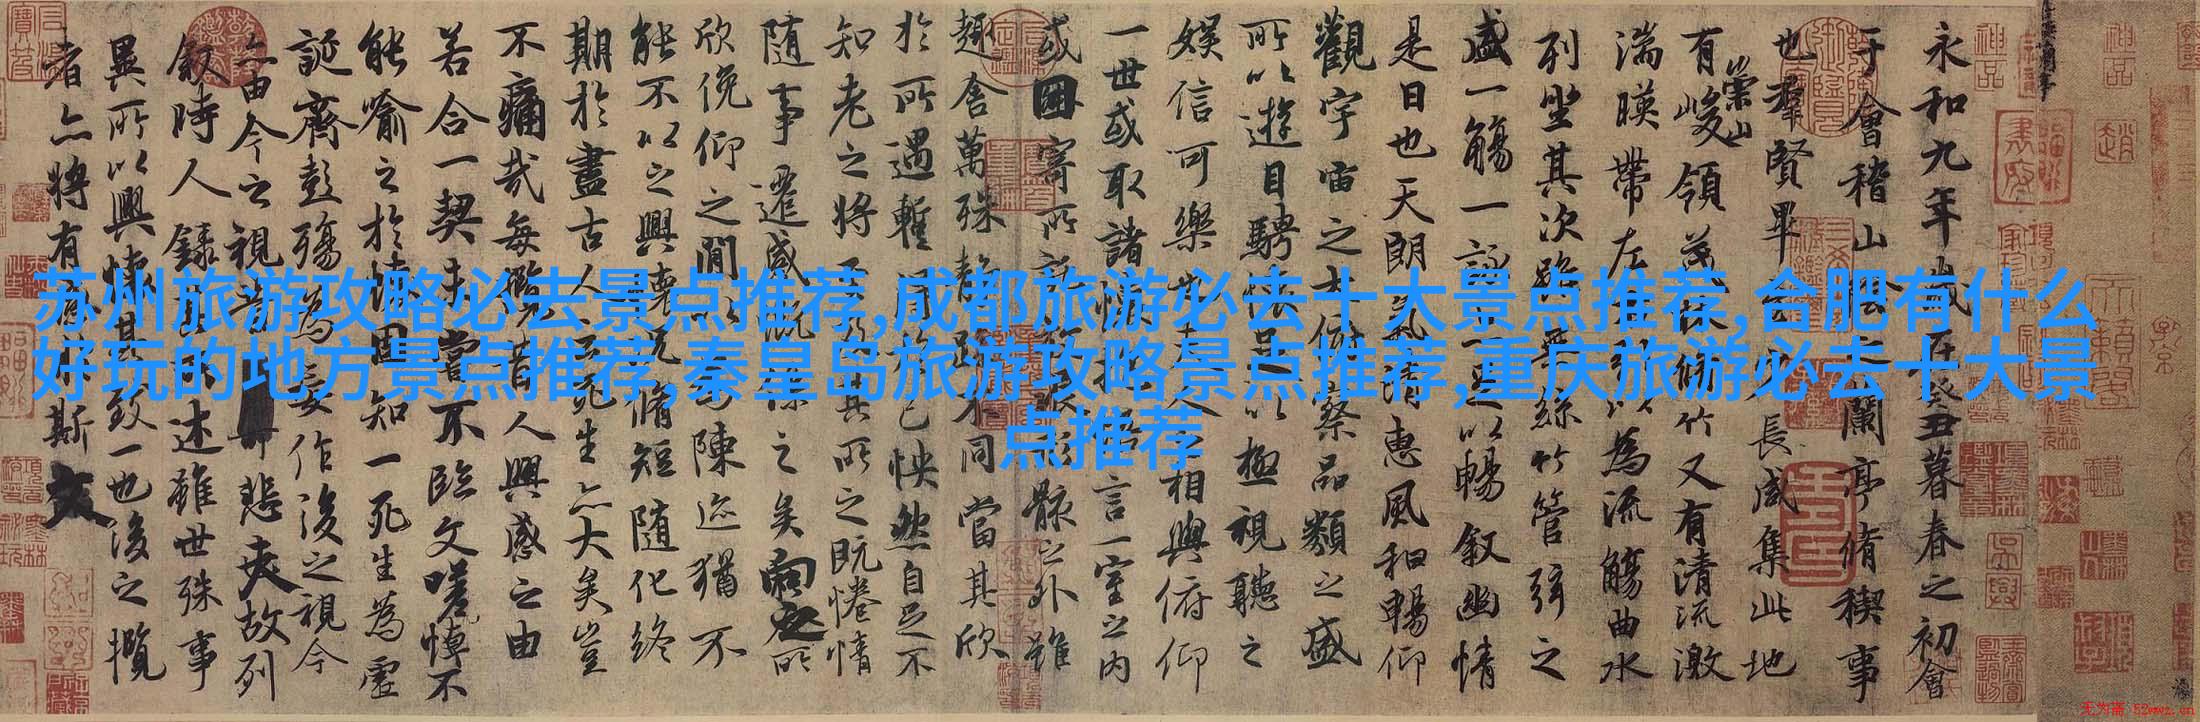 苏州旅游攻略必去景点推荐,成都旅游必去十大景点推荐,合肥有什么
好玩的地方景点推荐,秦皇岛旅游攻略景点推荐,重庆旅游必去十大景
点推荐
永和九年歲在癸丑暮春之初會
于會稽山陰之蘭亭脩稧事
也羣賢畢至少長咸集此地
有崇山峻領茂林脩竹又有清流激
湍暎帶左右引以為流觴曲水
列坐其次雖無絲竹管弦之
盛一觴一詠亦足以暢敘幽情
是日也天朗氣清惠風和暢仰
觀宇宙之大俯察品類之盛
所以遊目騁懷足以極視聽之
娛信可樂也夫人之相與俯仰
一世或取諸懷抱悟言一室之內
或因寄所託放浪形骸之外雖
趣舍萬殊靜躁不同當其欣
於所遇暫得於己怏然自足不
知老之將至及其所之既惓情
隨事遷感慨係之矣向之所
欣俛仰之閒以為陳迹猶不
能不以之興懷況脩短隨化終
期於盡古人云死生亦大矣豈
不痛哉每攬昔人興感之由
若合一契未嘗不臨文嗟悼不
能喻之於懷固知一死生為虛
誕齊彭殤為妄作後之視今
亦由今之視昔悲夫故列
敘時人錄其所述雖世殊事
異所以興懷其致一也後之攬
者亦將有感於斯文